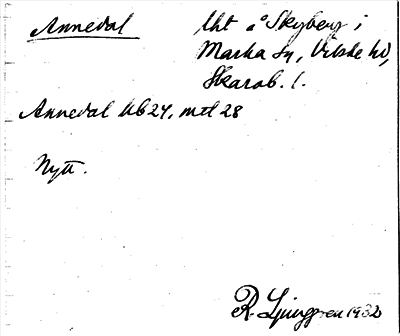 Annedal
Lht å Skyberg i
Marka Sn, Vilske hd,
Skarab. l.
Annedal Ub 24, mtl 28
Nytt.
R. Ljunggren 1932